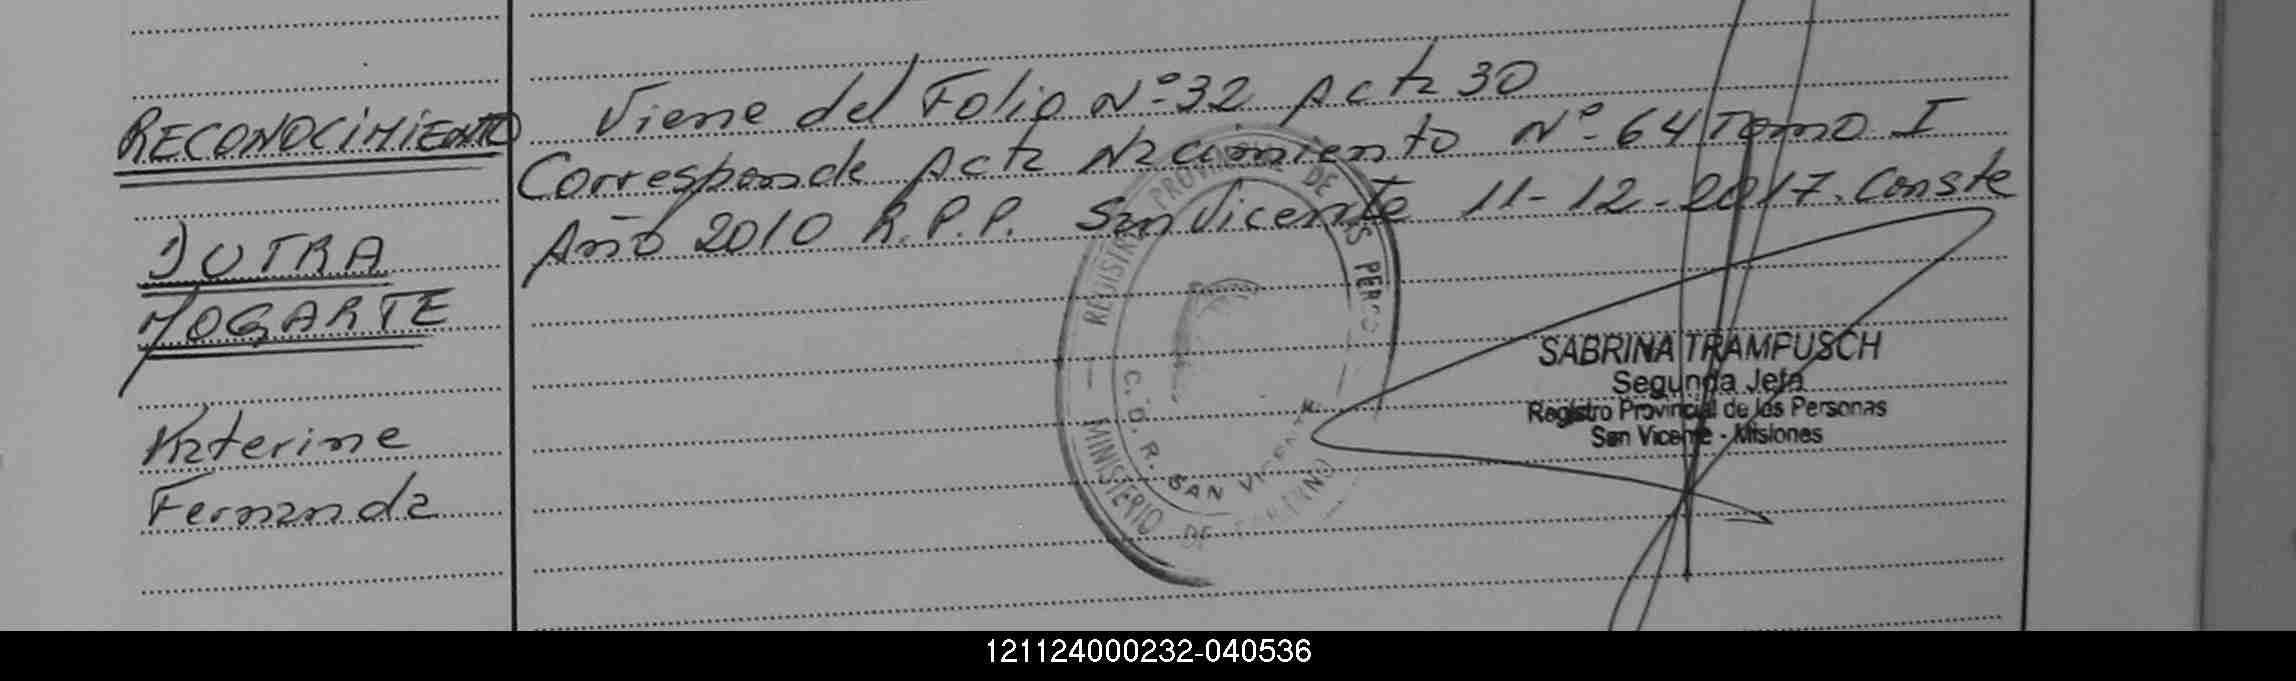 RECONOCIMIENTO
DUTRA
MOGARTE
Katerine
Fernanda
Viene del Folio Nº 32 Acta 30
Corresponde Acta Nacimiento Nº 64 Tomo I
Año 2010 R.P.P. San Vicente 11-12-2017. Conste
REGISTRO PROVINCIAL DE LAS PERSO
MINISTERIO DE GOBIERNO
C.D.R. SAN VICENTE
SABRINA TRAMFUSCH
Segunda Jefa
Registro Provincial de las Personas
San Vicente - Misiones
121124000232-040536